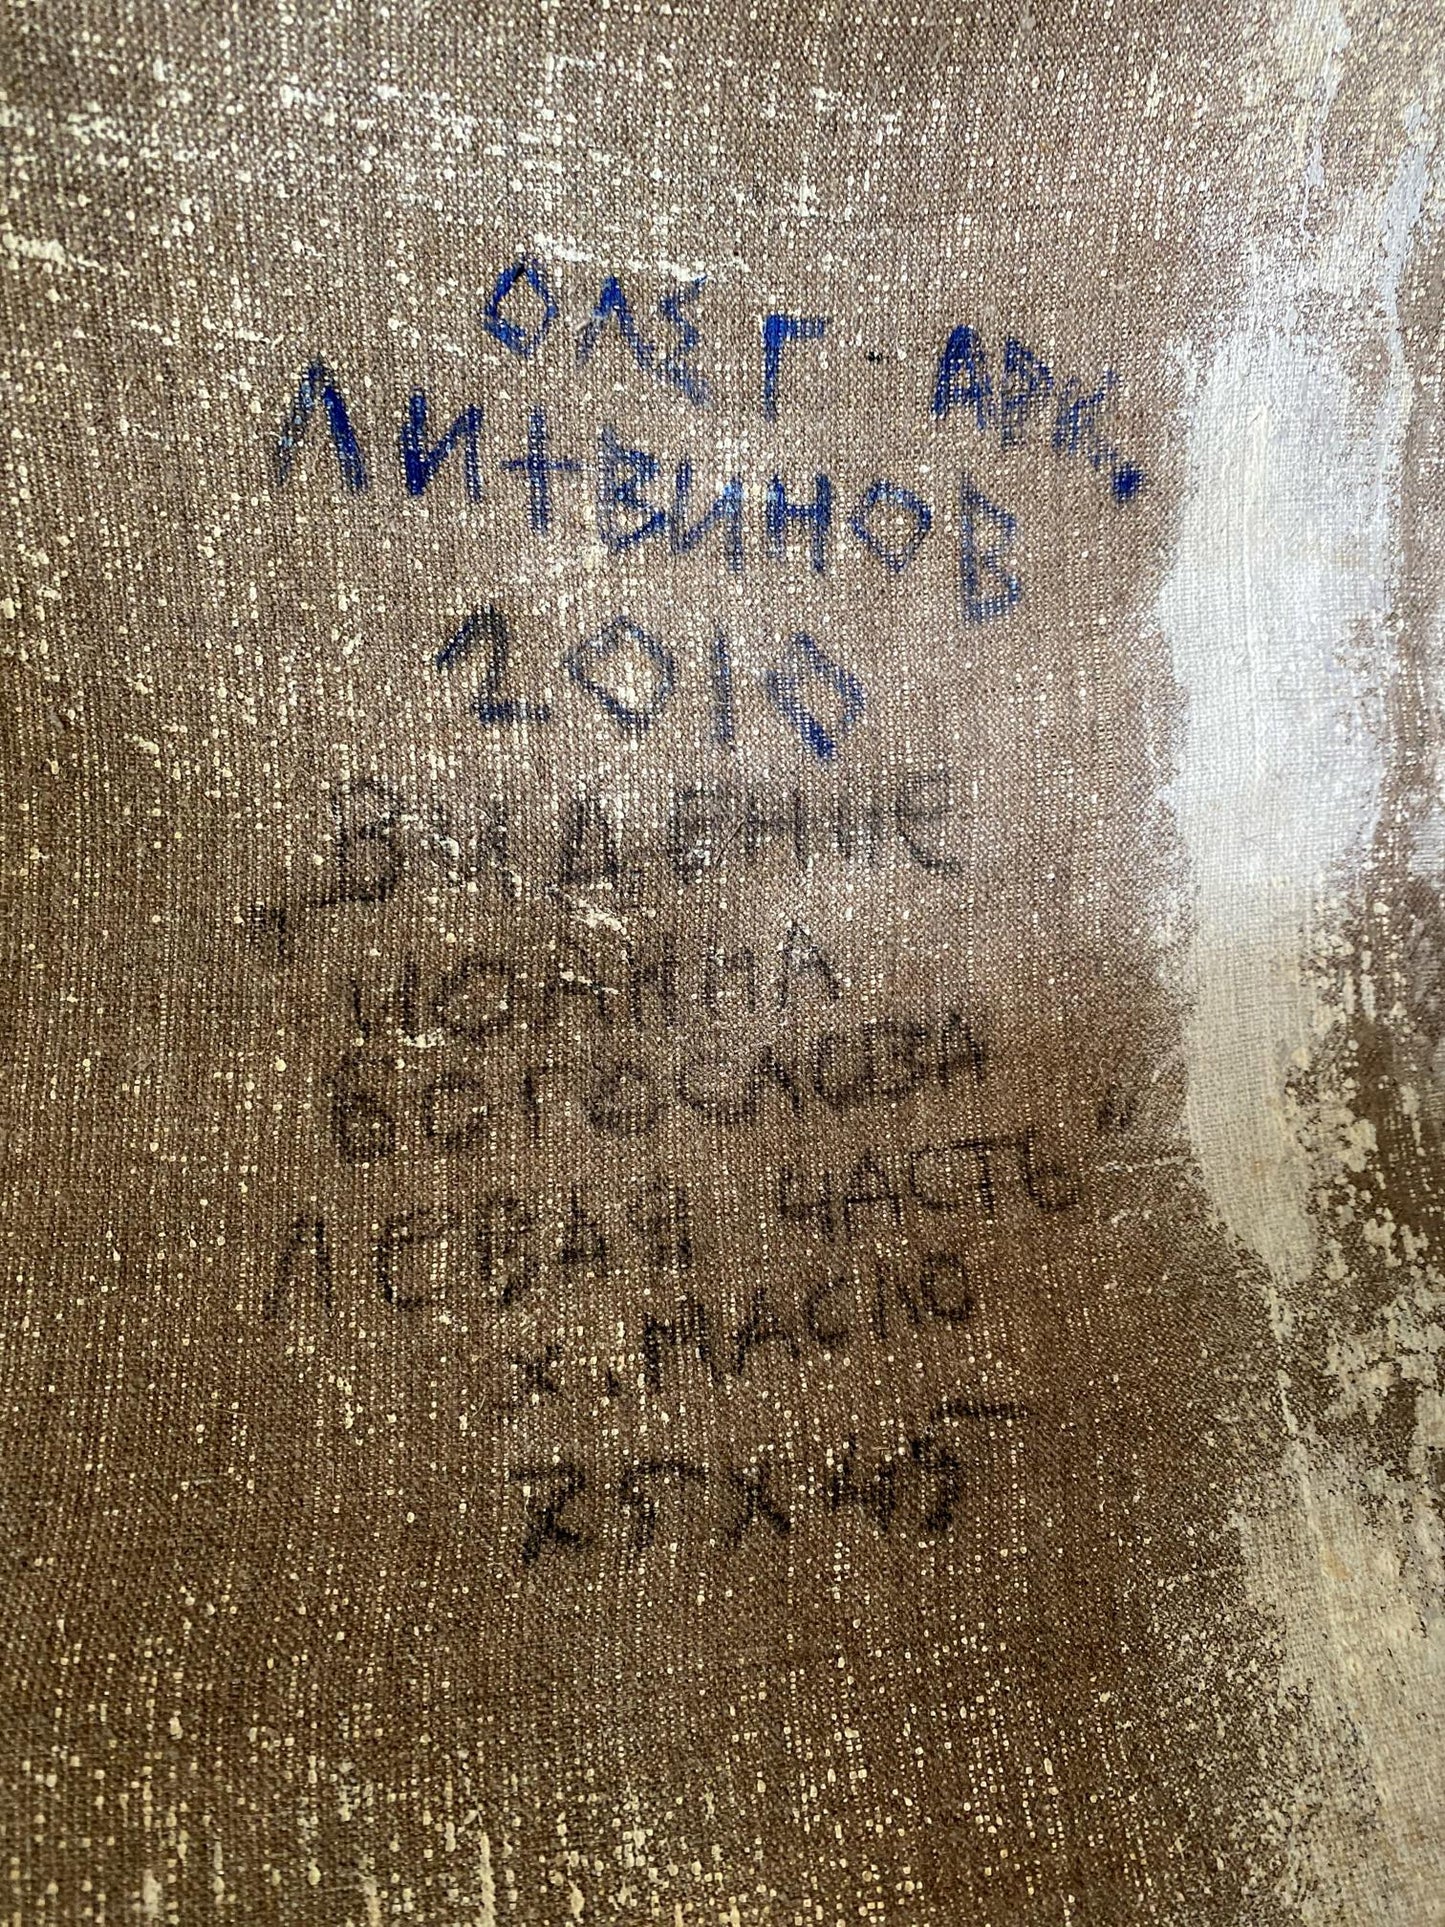 ОЛЕГ АРК.
ЛИТВИНОВ
2010
„ВИДЕНИЕ
ИОАННА
БОГОСЛОВА
ЛЕВАЯ ЧАСТЬ"
х. МАСЛО